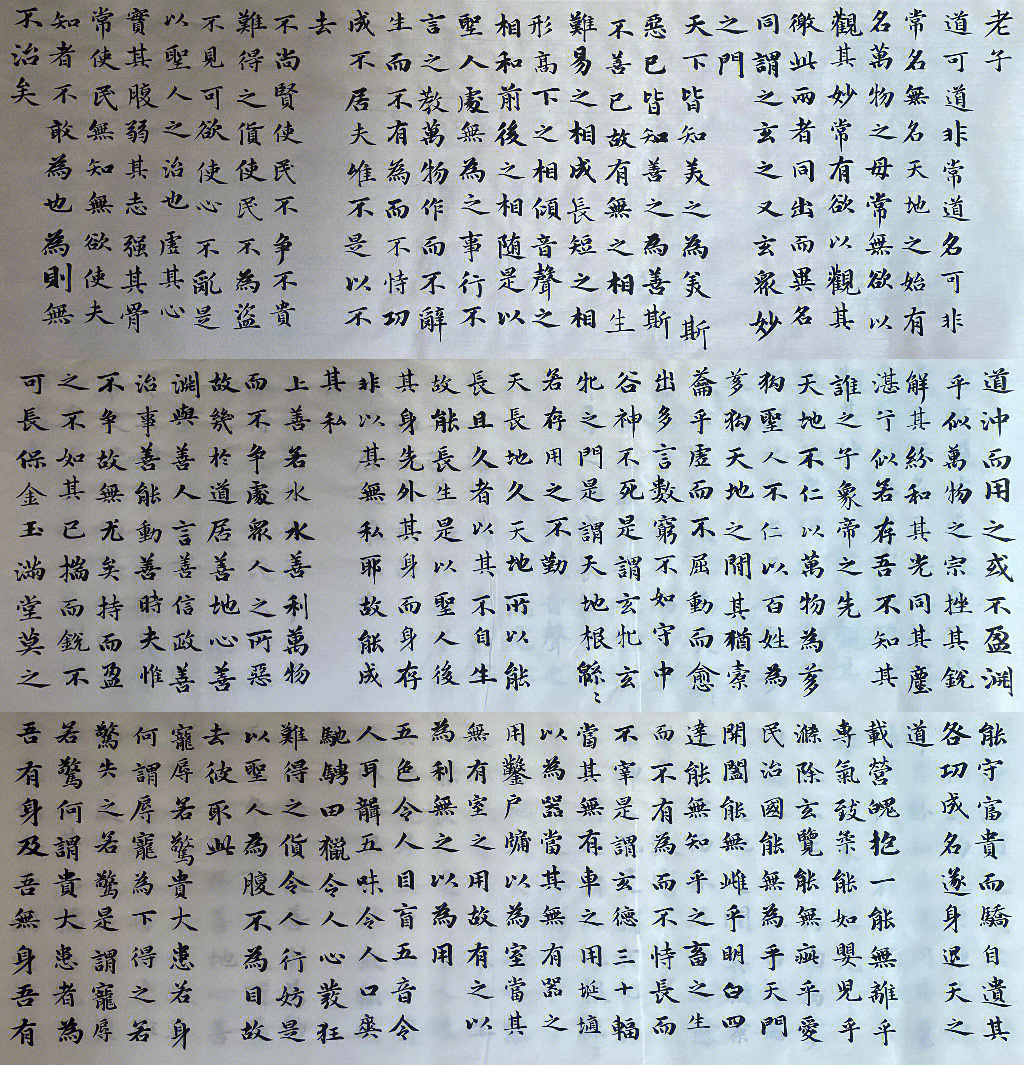 老子
道可道非常道名可非
常名無名天地之始有
名萬物之母常無欲以
觀其妙常有欲以觀其
徼此兩者同出而異名
同謂之玄之又玄衆妙
之門
天下皆知美之為美斯
惡已皆知善之為善斯
不善已故有無之相生
難易之相成長短之相
形高下之相傾音聲之
相和前後之相随是以
聖人處無為之事行不
言之教萬物作而不辭
生而不有為而不恃功
成不居夫唯不是以不
去
不尚賢使民不争不貴
難得之貨使民不為盜
不見可欲使心不亂是
以聖人之治也虛其心
實其腹弱其志强其骨
常使民無知無欲使夫
知者不敢為也為則無
不治矣
道沖而用之或不盈渊
乎似萬物之宗挫其銳
解其紛和其光同其塵
湛兮似若存吾不知其
誰之子象帝之先
天地不仁以萬物為芻
狗聖人不仁以百姓為
芻狗天地之間其猶橐
籥乎虛而不屈動而愈
出多言數窮不如守中
谷神不死是謂玄牝玄
牝之門是謂天地根綿〻
若存用之不勤
天長地久天地所以能
長且久者以其不自生
故能長生是以聖人後
其身先外其身而身存
非以其無私耶故能成
其私
上善若水水善利萬物
而不争處衆人之所惡
故幾於道居善地心善
渊與善人言善信政善
治事善能動善時夫惟
不争故無尤矣持而盈
之不如其已揣而銳不
可長保金玉滿堂莫之
能守富貴而驕自遺其
咎功成名遂身退天之
道
載營魄抱一能無離乎
専氣致柔能如嬰兒乎
滌除玄覽能無疵乎愛
民治國能無為乎天門
開闔能無雌乎明白四
達能無知乎之畜之生
而不有為而不恃長而
不宰是謂玄德三十輻
當其無有車之用埏埴
以為器當其無有器之
用鑿户牖以為室當其
無有室之用故有之以
為利無之以為用
五色令人目盲五音令
人耳聾五味令人口爽
馳騁田獵令人心發狂
難得之貨令人行妨是
以聖人為腹不為目故
去彼取此
寵辱若驚貴大患若身
何謂辱寵為下得之若
驚失之若驚是謂寵辱
若驚何謂貴大患者為
吾有身及吾無身吾有